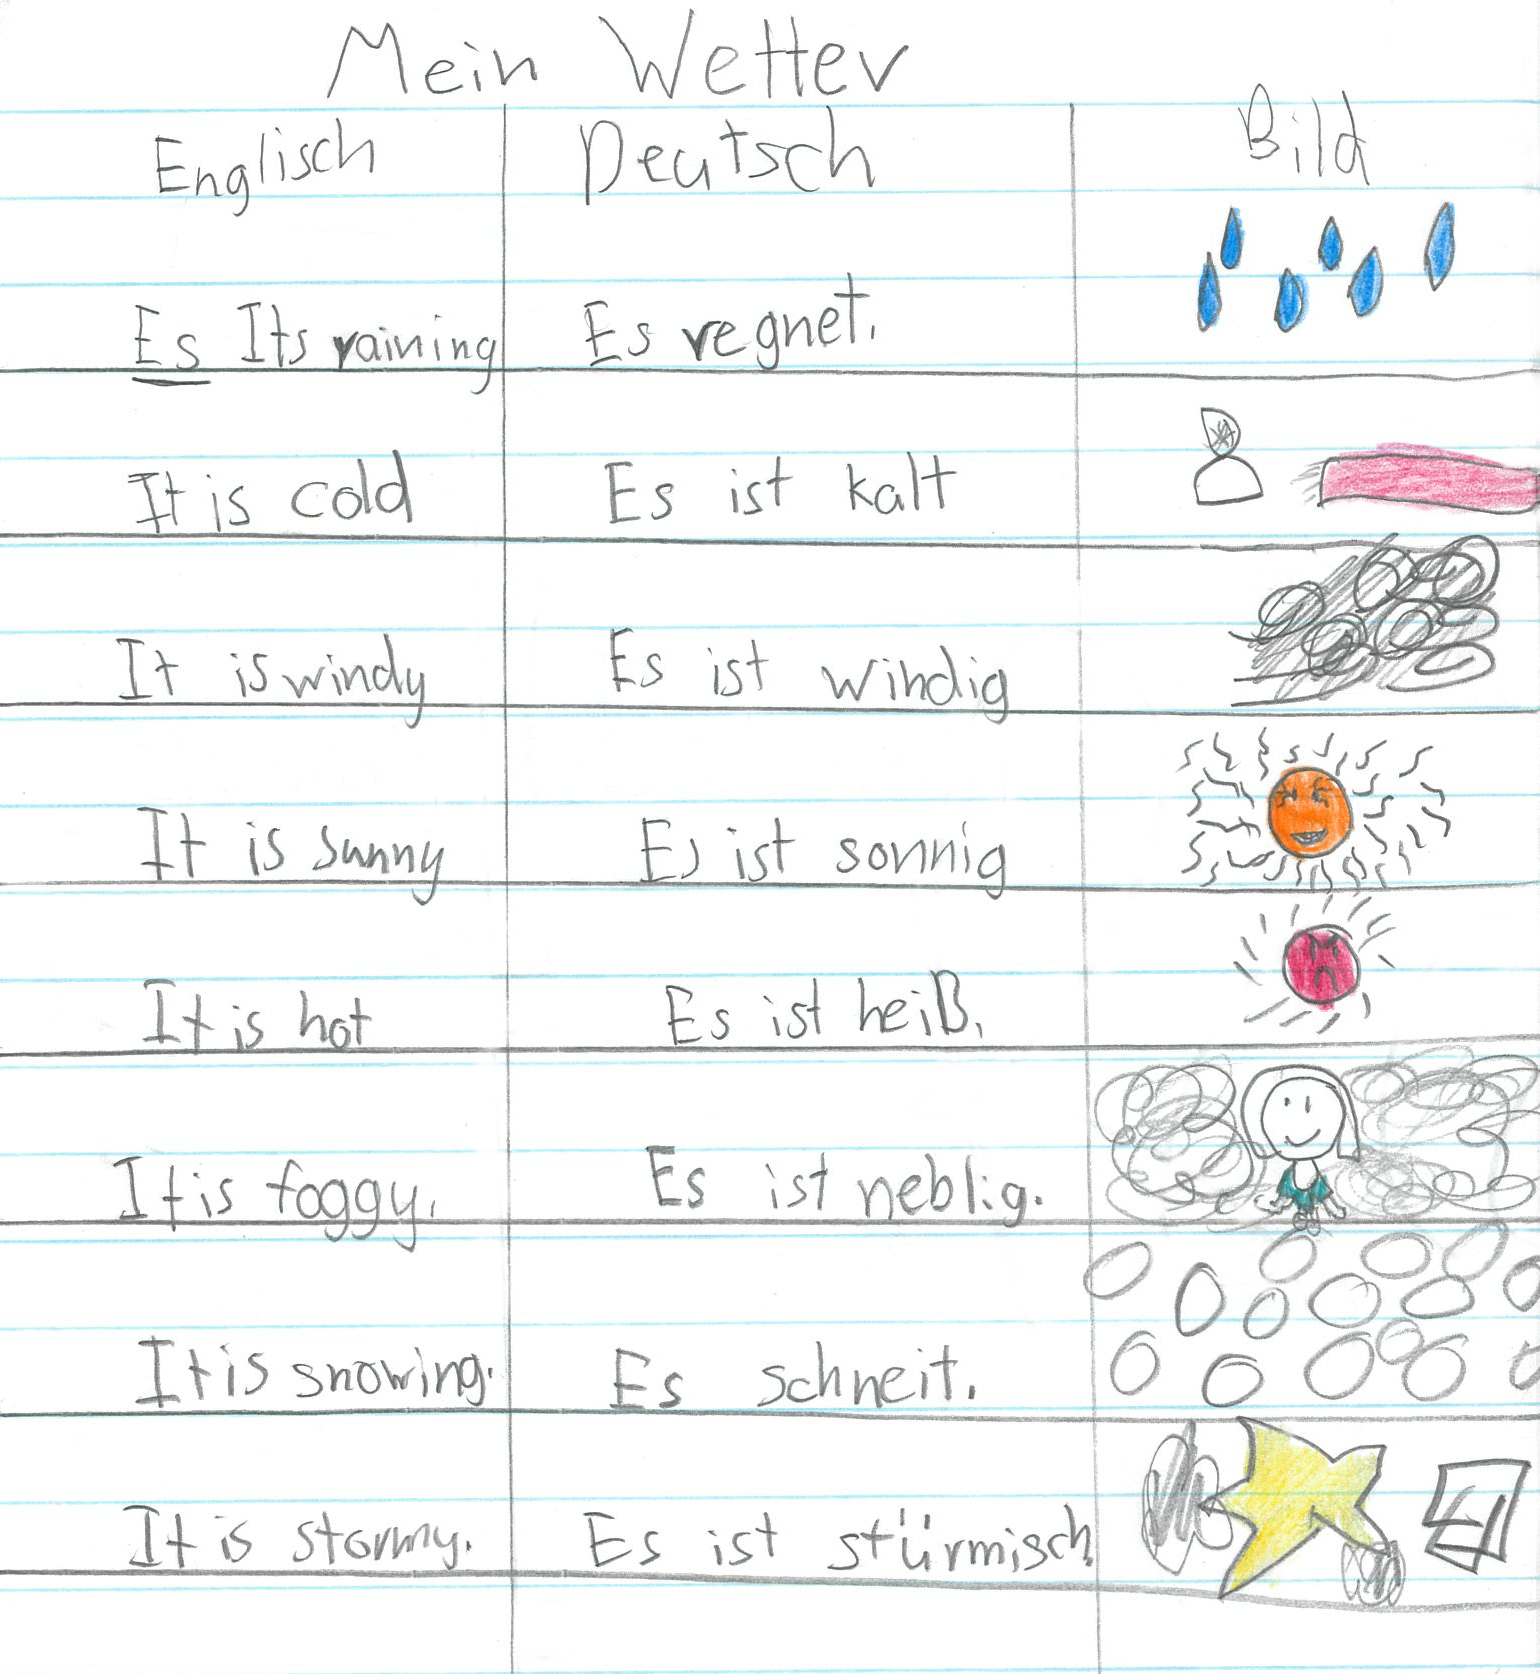 Mein Wetter
Englisch Deutsch Bild
Es Its raining Es regnet.
It is cold Es ist kalt
It is windy Es ist windig
It is sunny Es ist sonnig
It is hot Es ist heiß.
It is foggy. Es ist neblig.
It is snowing. Es schneit.
It is stormy. Es ist stürmisch